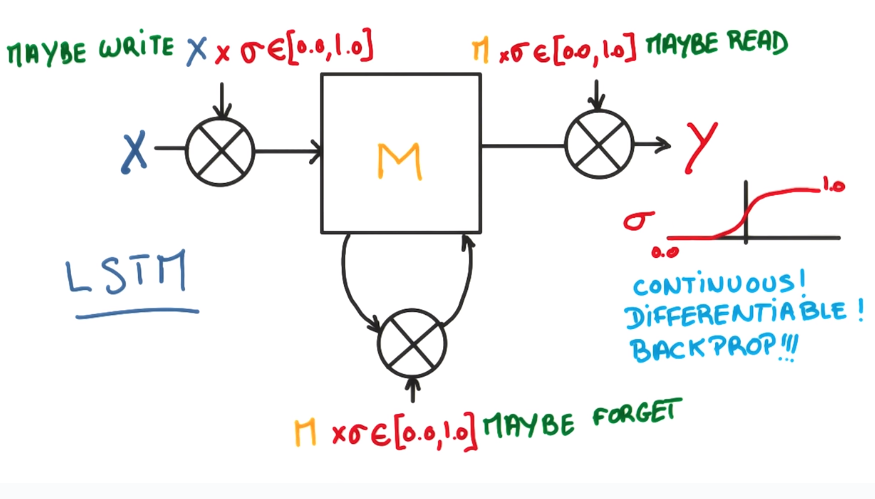 MAYBE WRITE X x σ∈[0.0,1.0]
M xσ∈[0.0,1.0] MAYBE READ
X
M
Y
LSTM
σ
1.0
0.0
CONTINUOUS!
DIFFERENTIABLE!
BACKPROP!!!
M xσ∈[0.0,1.0] MAYBE FORGET